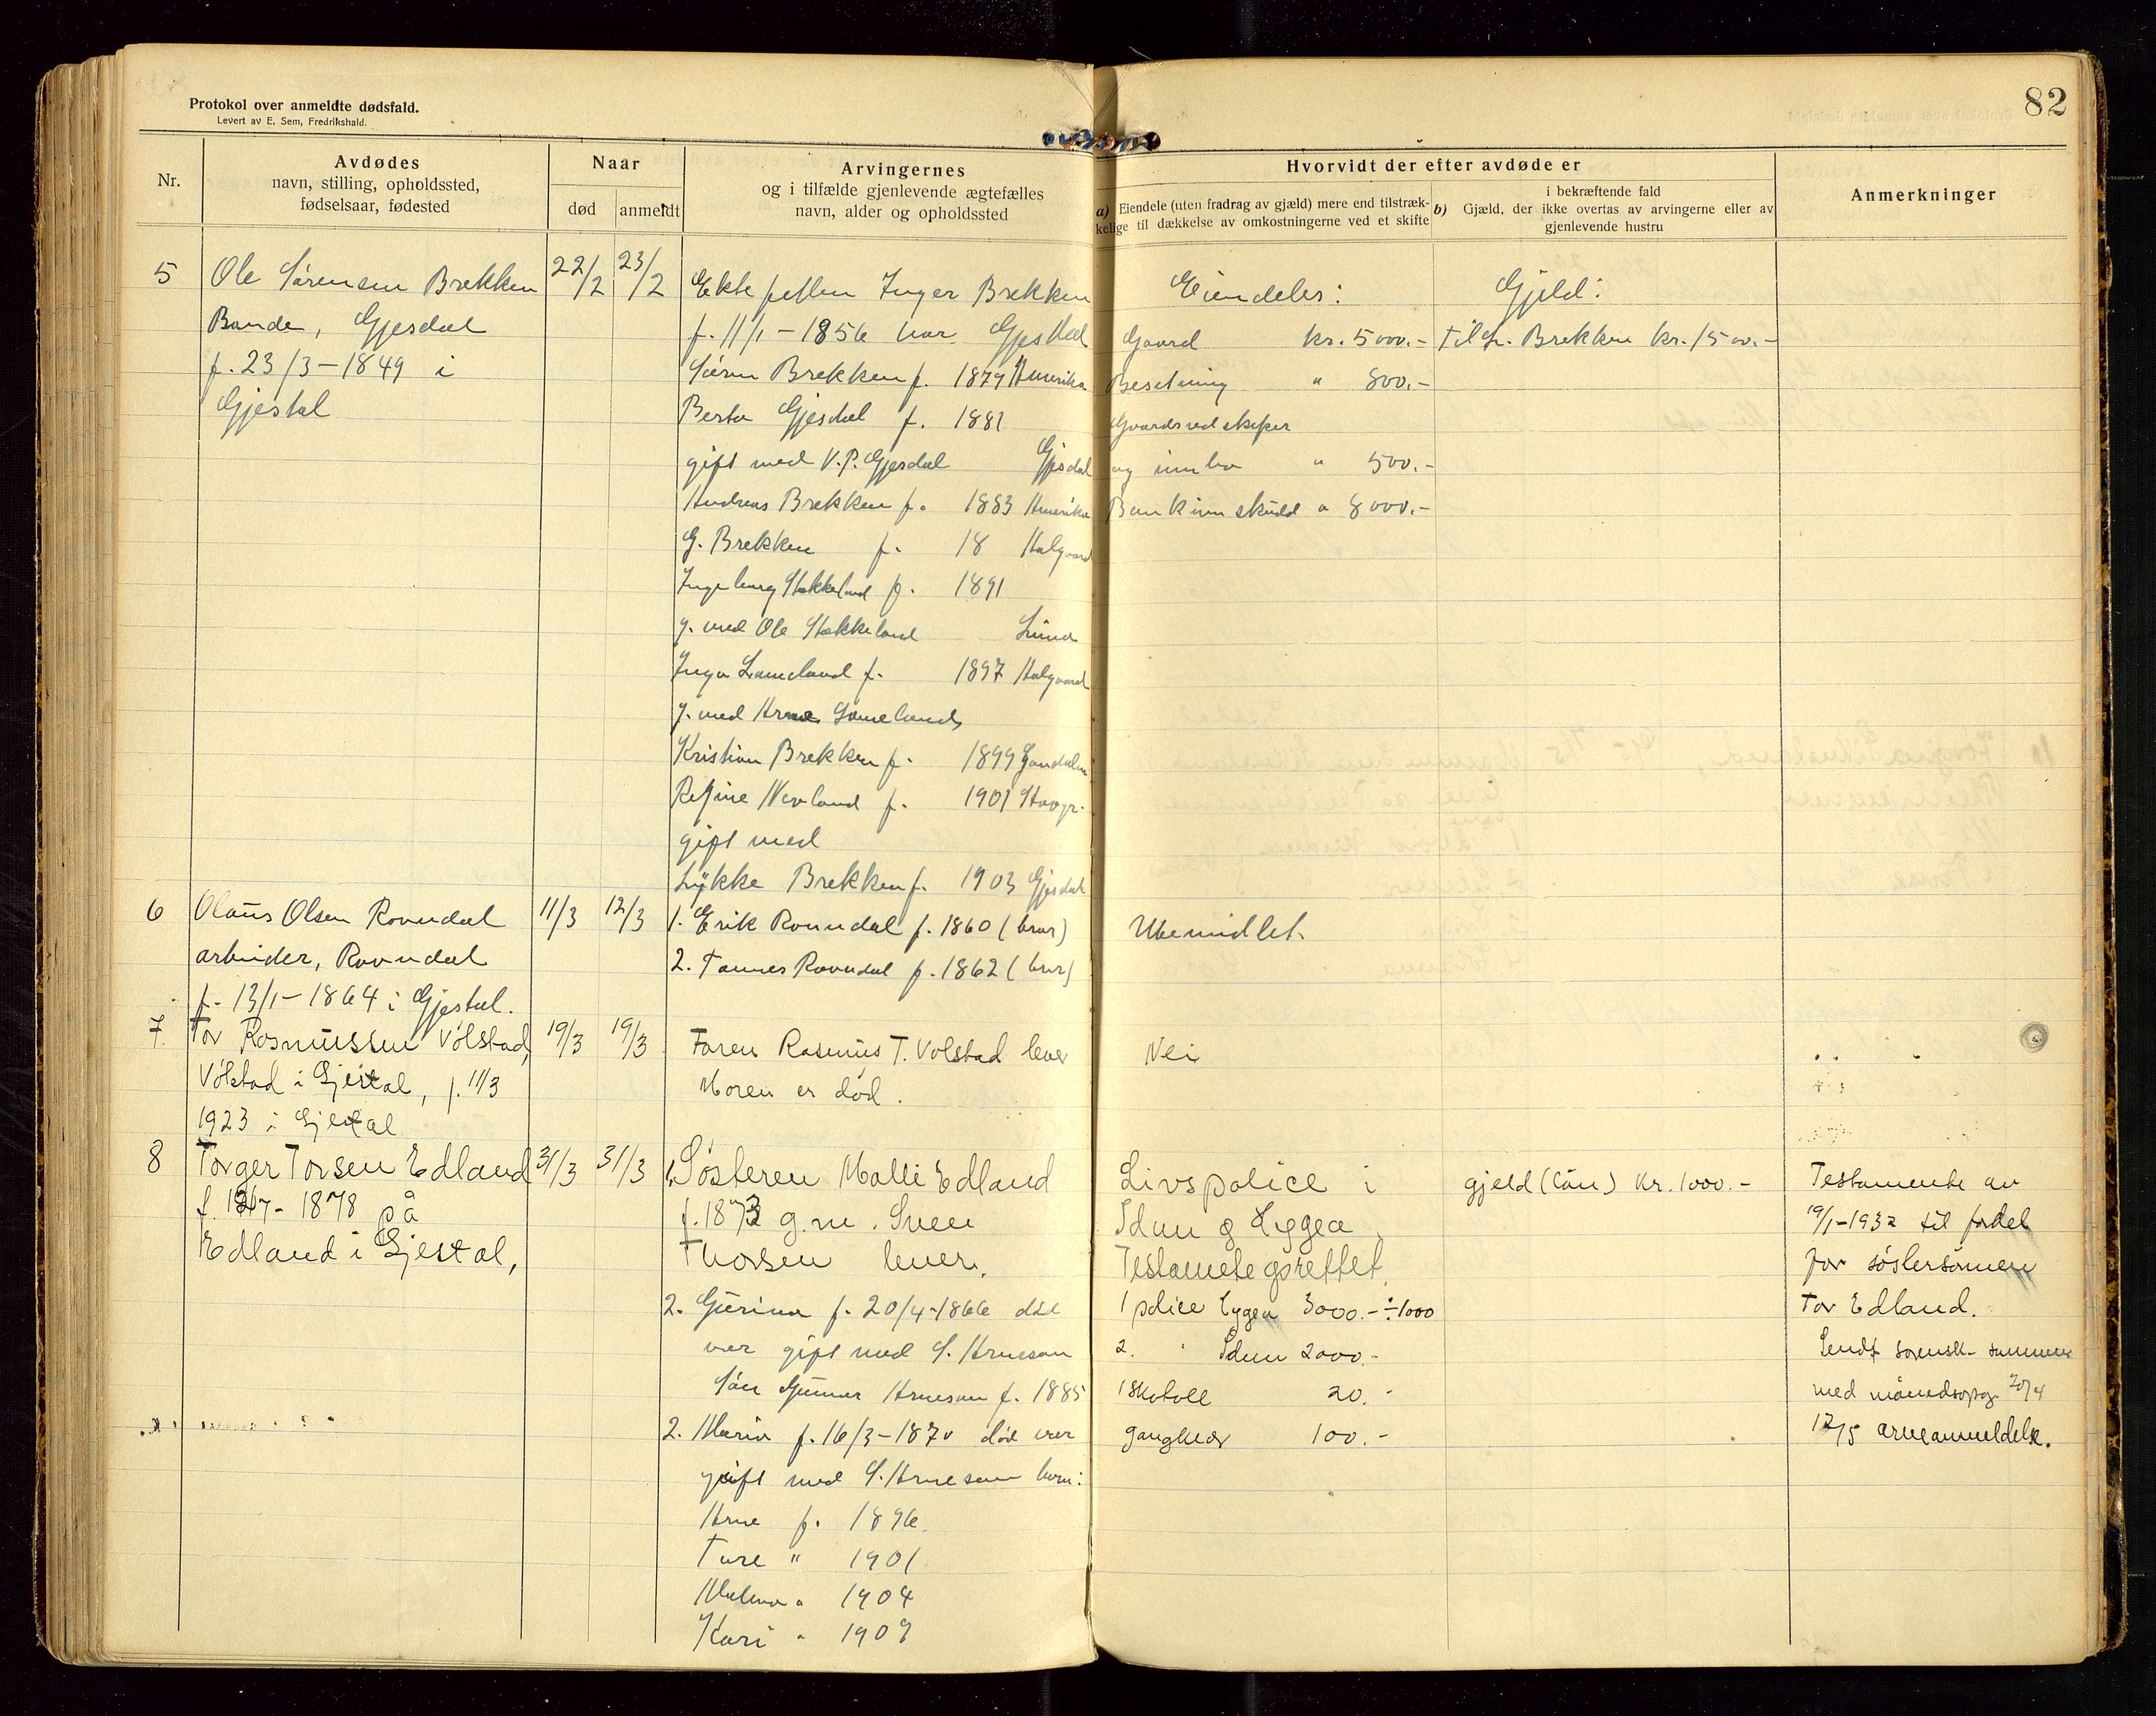 Protokol over anmeldte dødsfald.
Levert av E. Sem, Fredrikshald.
82
Nr.
Avdødes
navn, stilling, opholdssted,
fødselsaar, fødested
Naar
død
anmeldt
Arvingernes
og i tilfælde gjenlevende ægtefælles
navn, alder og opholdssted
Hvorvidt der efter avdøde er
a) Eiendele (uten fradrag av gjæld) mere end tilstræk-
kelige til dækkelse av omkostningerne ved et skifte
i bekræftende fald
b) Gjæld, der ikke overtas av arvingerne eller av
gjenlevende hustru
Anmerkninger
5
Ole Sørensen Brekken
Bonde, Gjesdal
f. 23/3-1849 i
Gjestal
22/2
23/2
Ektefellen Inger Brekken
f. 11/1-1856 Gjesdal
Søren Brekken f. 1879 Amerika
Berta Gjesdal f. 1881
gift med V.P. Gjesdal Gjesdal
Andreas Brekken f. 1883 Amerika
G. Brekken f. 18 Aalgaard
Ingeborg Stokkeland f. 1891
g. med Ole Stokkeland Lund
Inga Lameland f. 1897 Aalgaard
g. med Arne Lameland
Kristian Brekken f. 1899 Gandalen
Refine Nevland f. 1901 Stavgr.
gift med
Lykke Brekken f. 1903 Gjesdal
Eiendeler:
Gaard kr. 5000.-
Besetning " 800.-
Gaardsredskaper
og innbo " 500.-
Bankinnskudd " 8000.-
Gjeld:
til Brekken kr. 1500.-
6
Olaus Olsen Ravndal
arbeider, Ravndal
f. 13/1-1864 i Gjestal.
11/3
12/3
1. Erik Ravndal f. 1860 (bror)
2. Tønnes Ravndal f. 1862 (bror)
Ubemidlet.
7.
Tor Rasmussen Vølstad,
Vølstad i Gjestal, f. 11/3
1923 i Gjestal
19/3
19/3
Faren Rasmus T. Vølstad lever
Moren er død.
Nei
8
Torger Torsen Edland
f. 1878 på
Edland i Gjestal,
31/3
31/3
1. Søsteren Malli Edland
f. 1873 g.m. Sven
Thorsen lever.
2. Gurina f. 20/4-1866 død
var gift med S. Arneson
Søn Gunnar Arneson f. 1885
2. Maria f. 16/3-1870 død var
gift med S. Arneson barn:
Arne f. 1896.
Tore " 1901
Malena " 1904
Kari " 1909
Livspolice i
Idun & Hygea
Testamete oprettet.
1 police Hygea 3000.- ÷ 1000
2. " Idun 2000.-
1 skatoll 20.-
gangklær 100.-
gjeld (lån) kr. 1000.-
Testamente av
19/1-1932 til fordel
for søstersønnen
Tor Edland.
Sendt sorensk. sammen
med månedsopg. 20/4
12/5 arveanmeldelse.